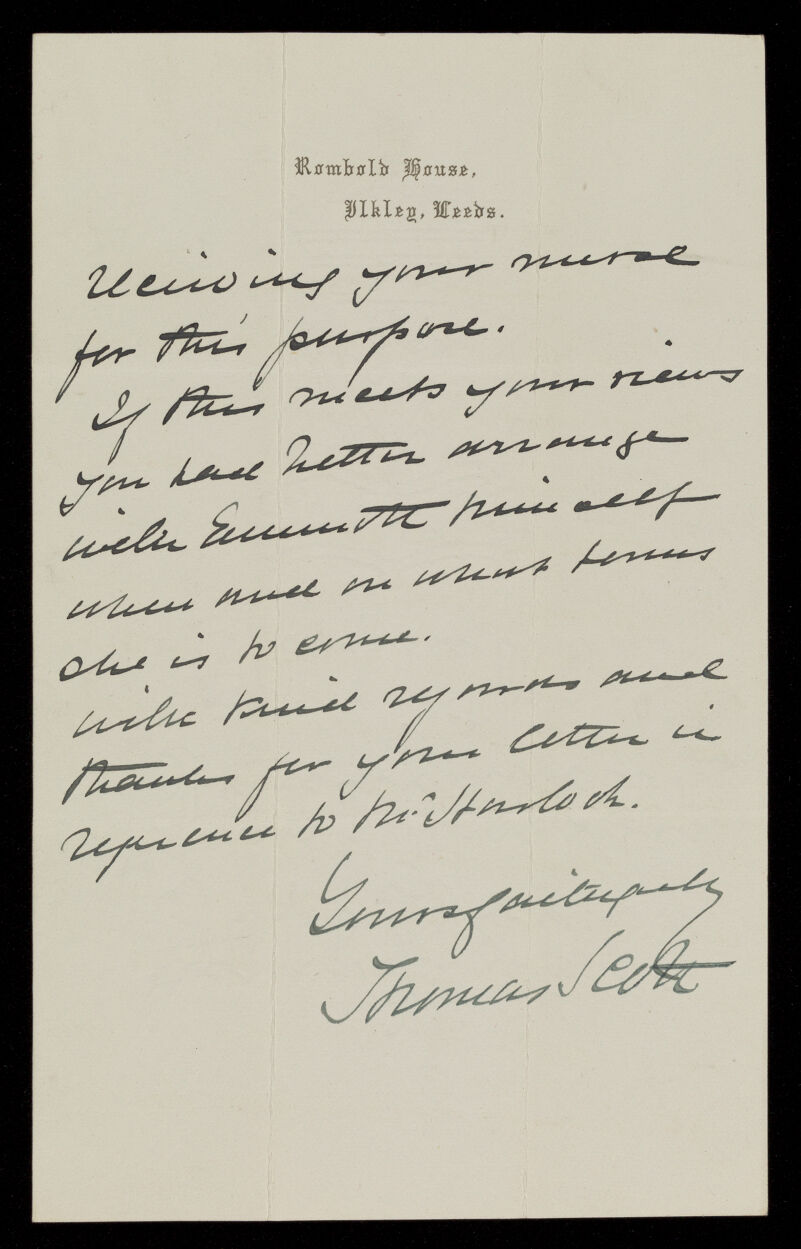 Rombold House,
Ilkley, Leeds.
receiving your nurse
for this purpose.
If this meets your views
you had better arrange
with Emmott himself
when and on what terms
she is to come.
with kind regards and
thanks for your letter in
reference to Mr. Horlock.
Yours faithfully
Thomas Scott